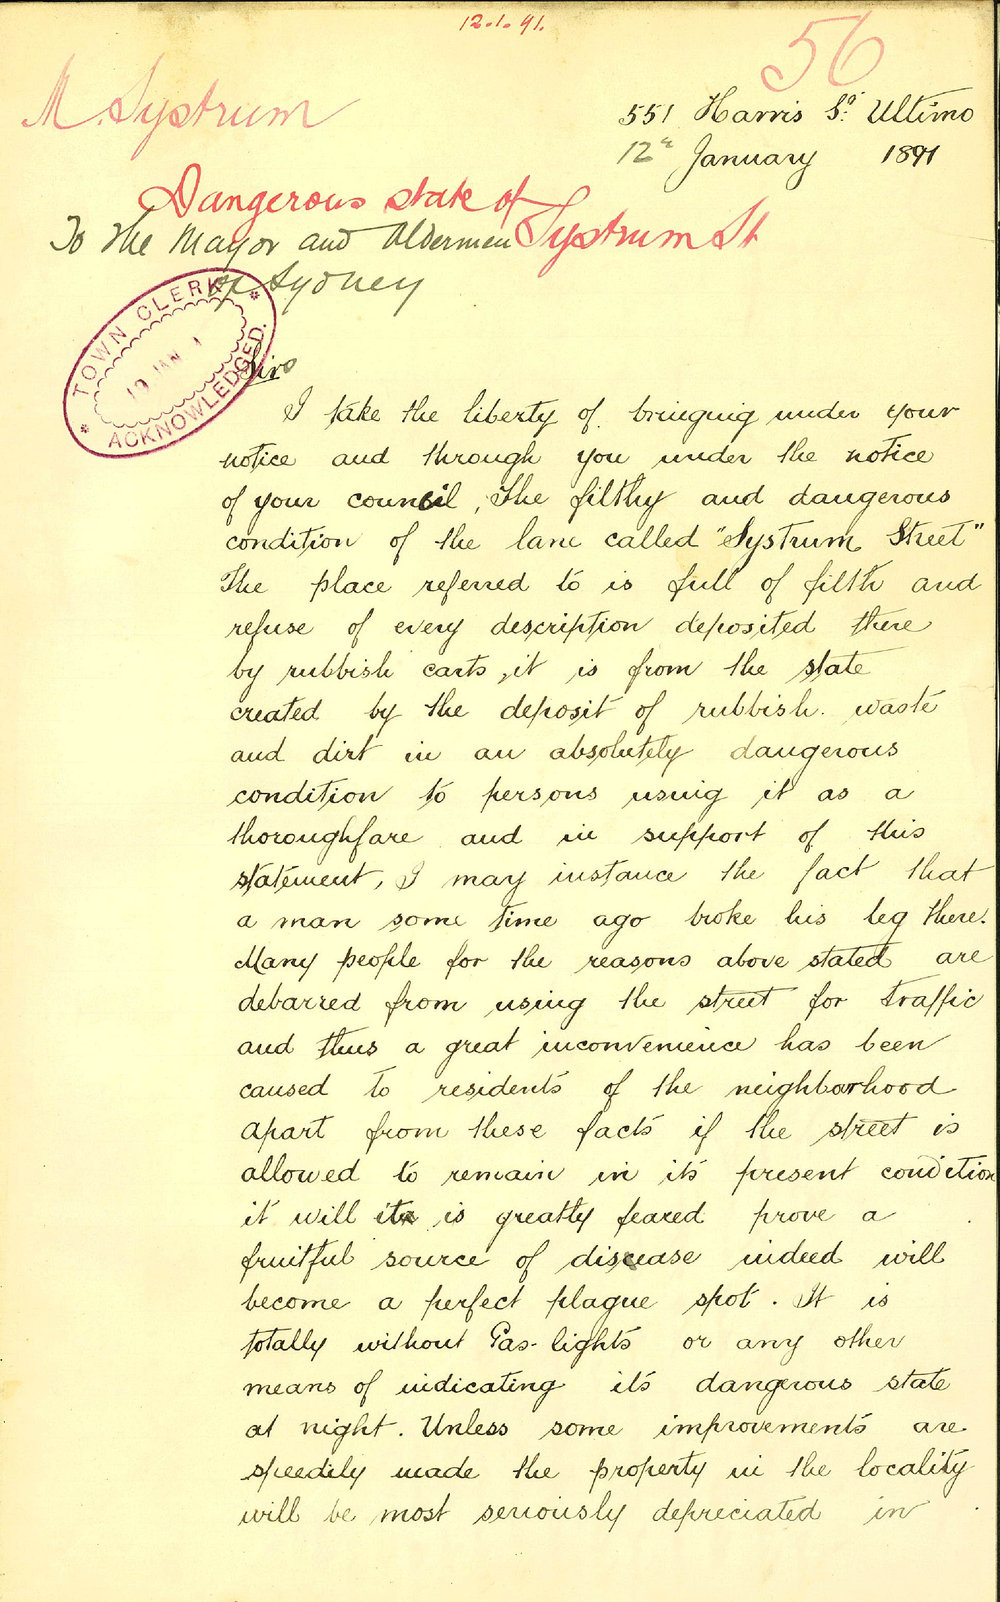 12.1.91.
56
M. Systrum
551 Harris St. Ultimo
12th January 1891
Dangerous state of
Systrum St
To the Mayor and Aldermen
of Sydney
TOWN CLERK
JAN
ACKNOWLEDGED.
Sirs
I take the liberty of bringing under your
notice and through you under the notice
of your council, The filthy and dangerous
condition of the lane called "Systrum Street"
The place referred to is full of filth and
refuse of every description deposited there
by rubbish carts, it is from the state
created by the deposit of rubbish. waste
and dirt in an absolutely dangerous
condition to persons using it as a
thoroughfare and in support of this
statement, I may instance the fact that
a man some time ago broke his leg there.
Many people for the reasons above stated are
debarred from using the street for traffic
and thus a great inconvenience has been
caused to residents of the neighborhood
apart from these facts if the street is
allowed to remain in its present condition
it will it is greatly feared prove a
fruitful source of disease indeed will
become a perfect plague spot. It is
totally without Gas-lights or any other
means of indicating it's dangerous state
at night. Unless some improvements are
speedily made the property in the locality
will be most seriously depreciated in